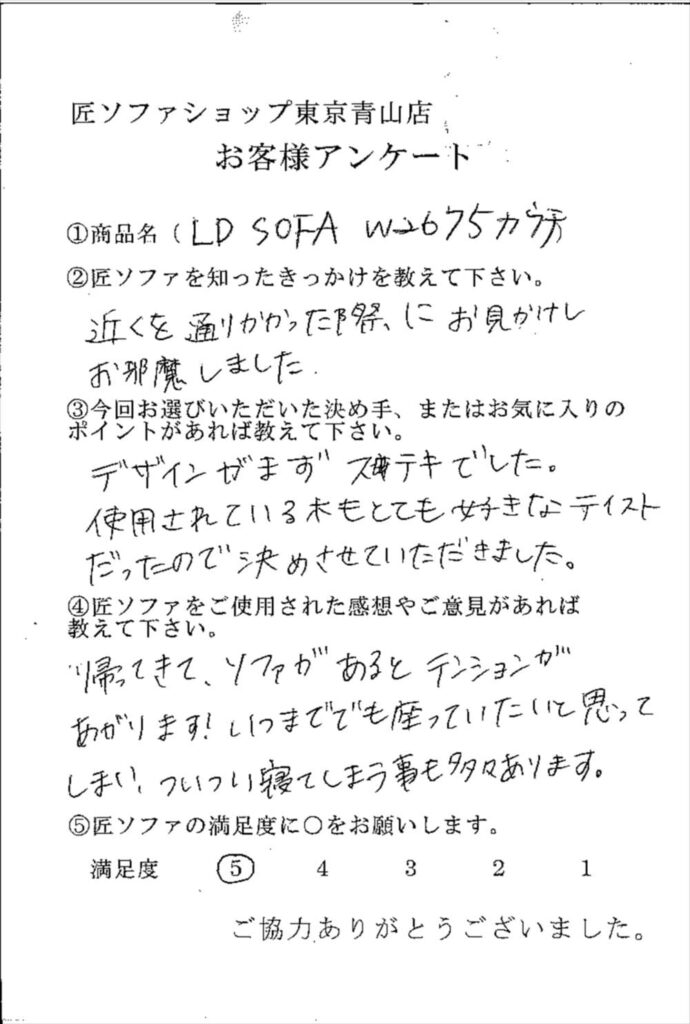 匠ソファショップ東京青山店
お客様アンケート
①商品名（LD SOFA W2675カウチ
②匠ソファを知ったきっかけを教えて下さい。
近くを通りかかった際、にお見かけし
お邪魔しました.
③今回お選びいただいた決め手、またはお気に入りの
ポイントがあれば教えて下さい。
デザインがまずステキでした。
使用されている木もとても好きなテイスト
だったので決めさせていただきました。
④匠ソファをご使用された感想やご意見があれば
教えて下さい。
帰ってきて、ソファがあるとテンションが
あがります!いつまででも座っていたいと思って
しまい、ついつい寝てしまう事も多々あります。
⑤匠ソファの満足度に○をお願いします。
満足度 5 4 3 2 1
ご協力ありがとうございました。